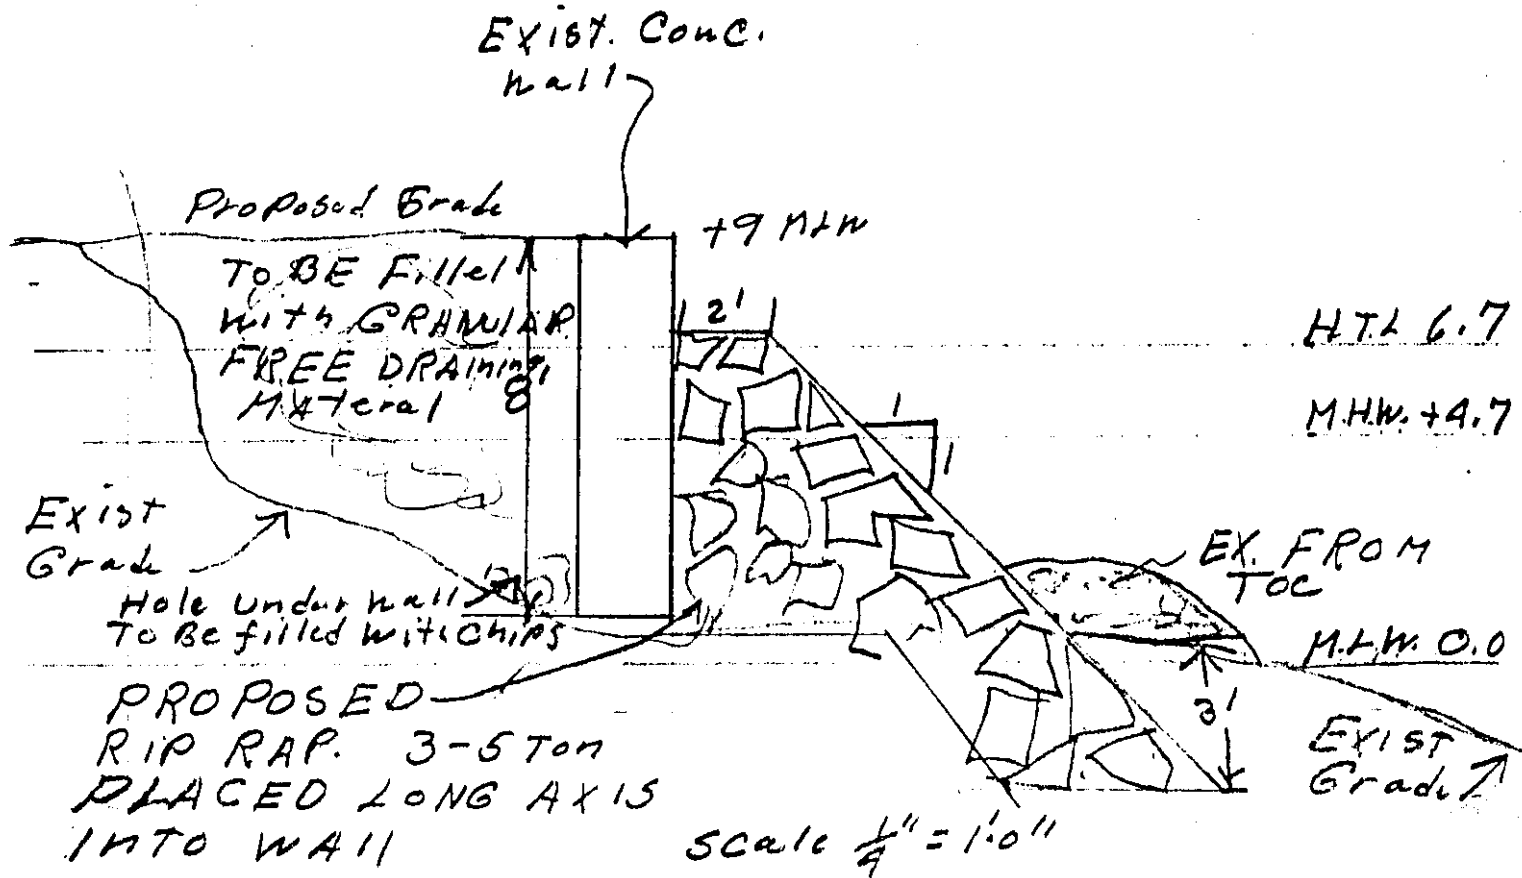 Exist. Conc.
Wall
Proposed Grade
+9 MLW
To BE Filled
With GRANULAR
FREE DRAining
MATeral
8'
2'
H.T.L 6.7
M.H.W. +4.7
1
1
Exist
Grade
EX. FROM
TOC
Hole under wall
To Be filled with Chips
M.L.W. 0.0
3'
PROPOSED
RIP RAP. 3-5 Ton
PLACED LONG AXIS
INTO WAll
Exist
Grade
Scale 1/4" = 1'.0"